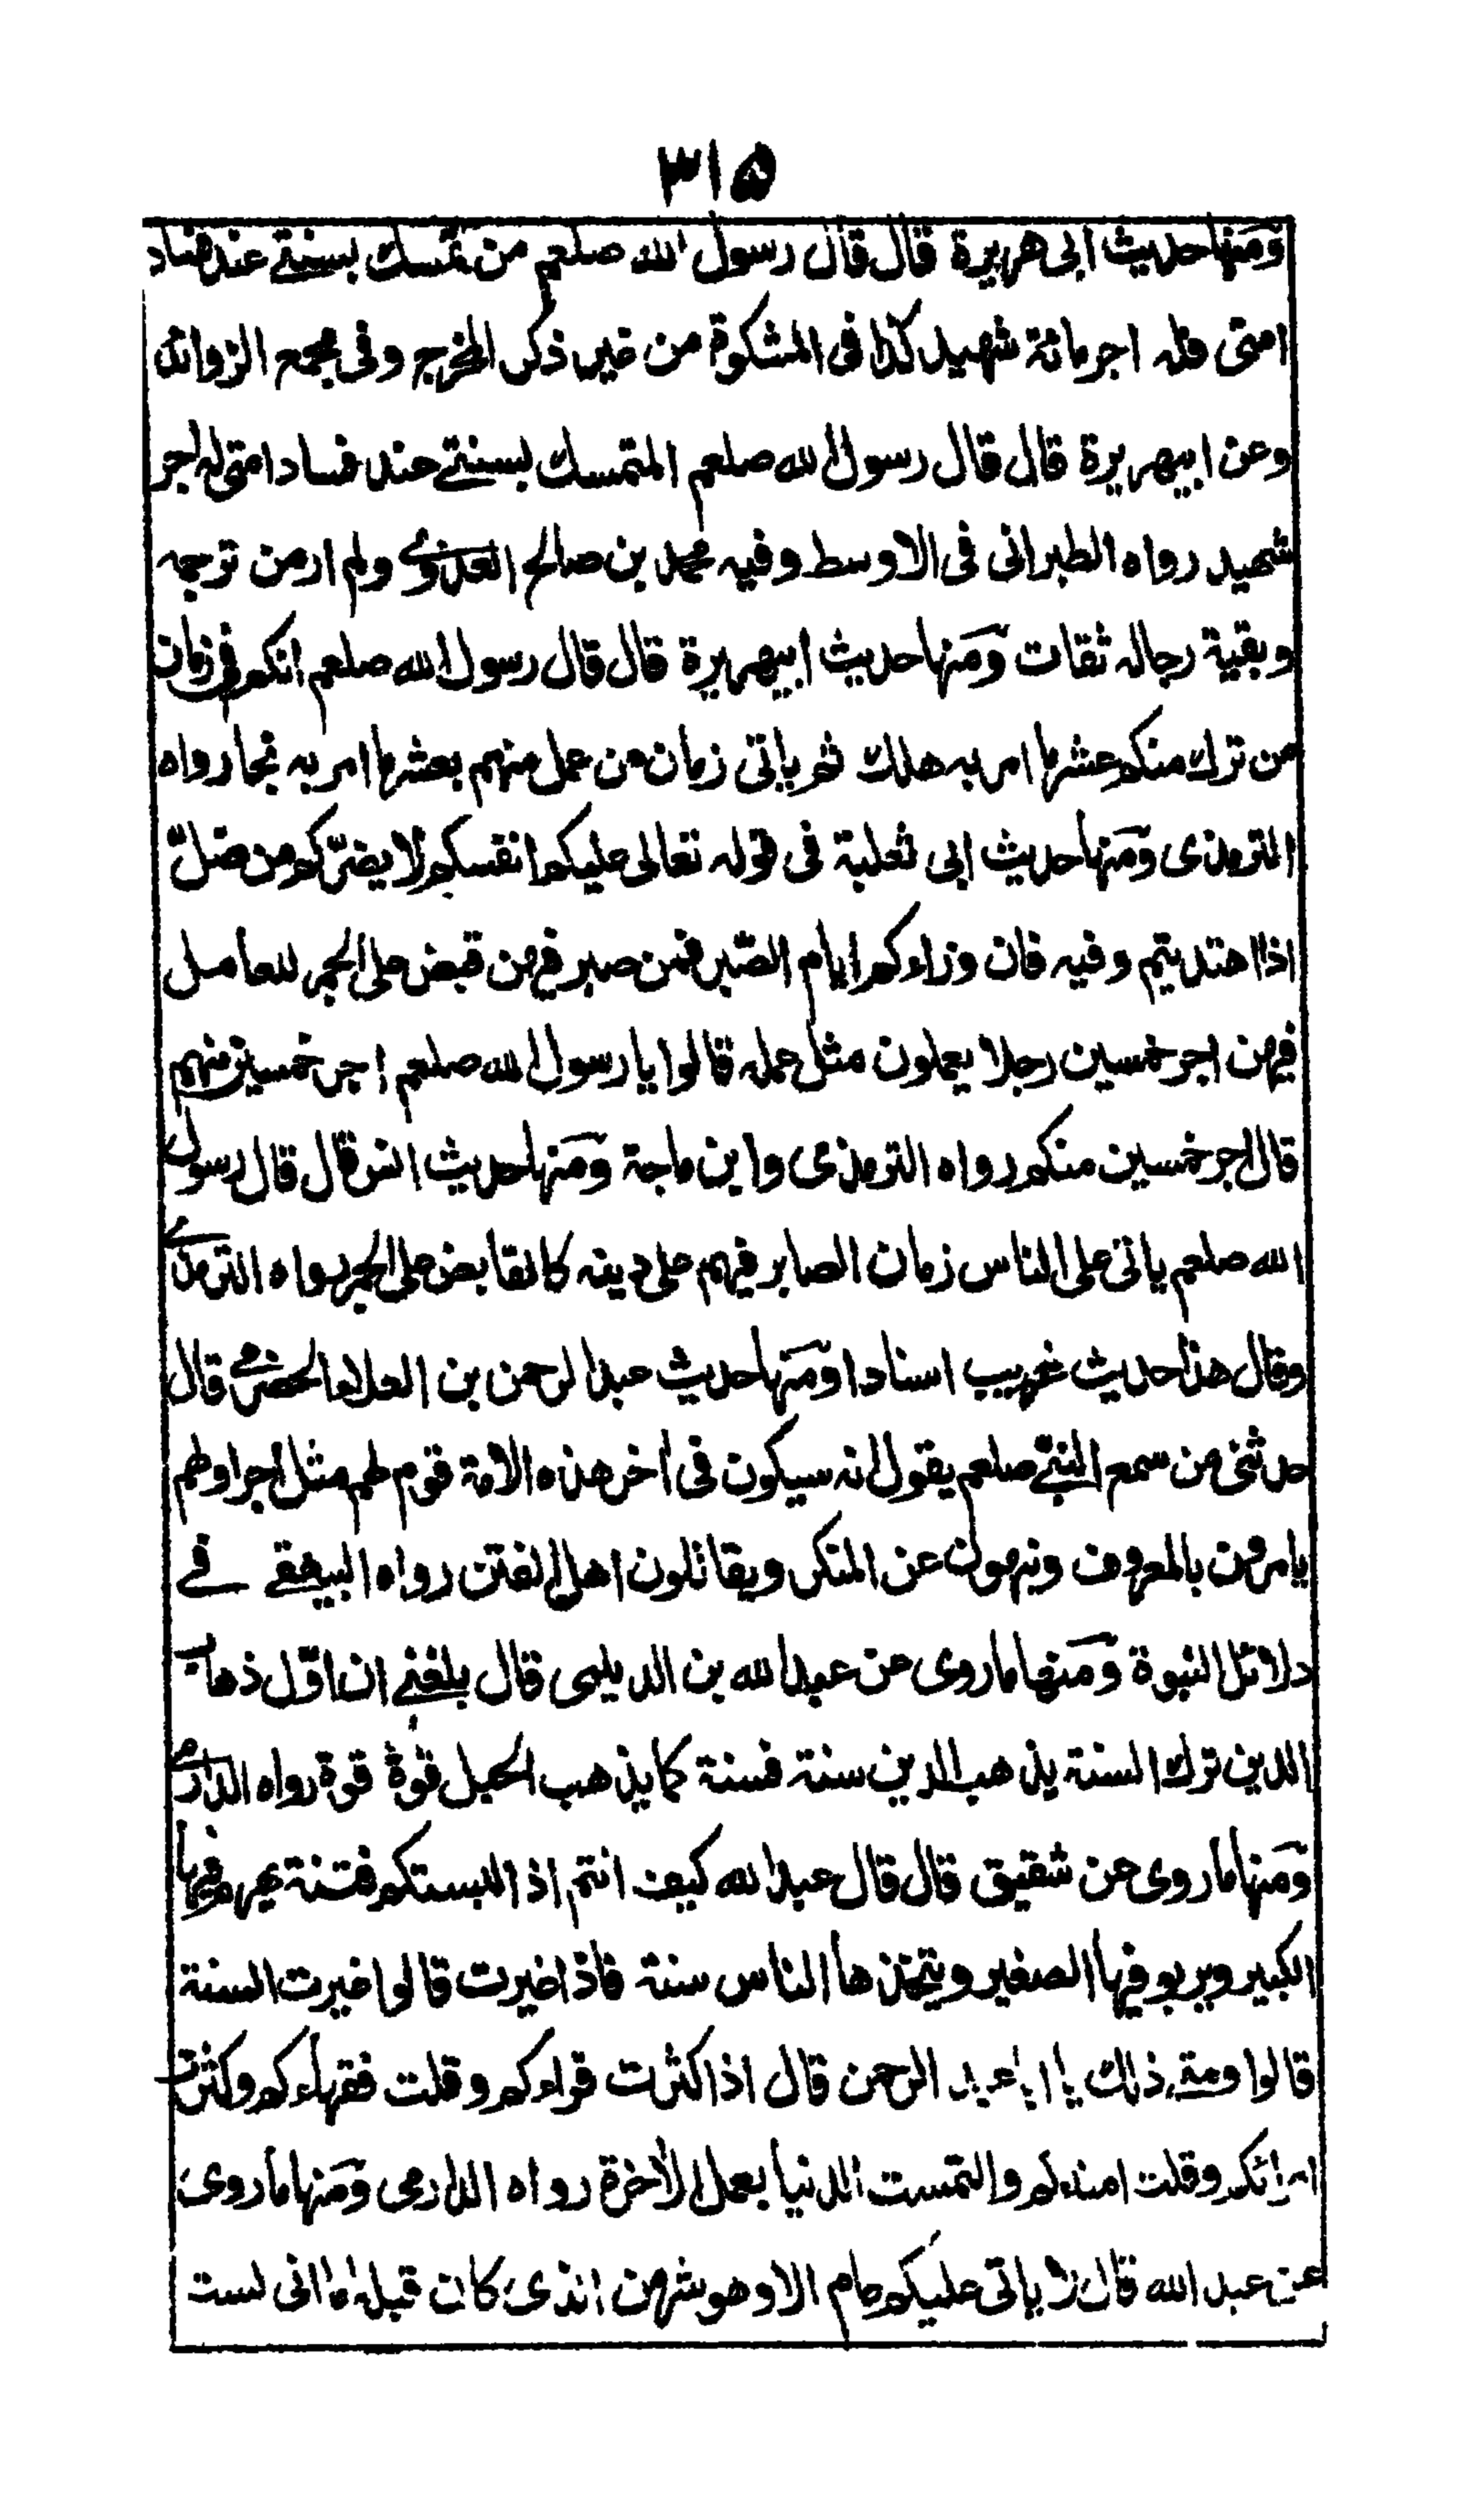 ٣١٥
ومنها حديث ابى هريرة قال قال رسول الله صلعم من تمسك بسنتي عند فساد
امتى فله اجر مائة شهيد كذا فى المشكوة من غير ذكر المخرج وفى مجمع الزوائد
وعن ابيهريرة قال قال رسول الله صلعم المتمسك بسنتي عند فساد امتى له اجر
شهيد رواه الطبرانى فى الاوسط وفيه محمد بن صالح العذوي ولم ار من ترجمه
وبقية رجاله ثقات ومنها حديث ابيهريرة قال قال رسول الله صلعم انكم فى زمان
من ترك منكم عشر ما امر به هلك ثم ياتى زمان من عمل منهم بعشر ما امر به نجا رواه
الترمذى ومنها حديث ابى ثعلبة فى قوله تعالى عليكم انفسكم لا يضرّكم من ضلّ
اذا اهتديتم وفيه فان وراءكم ايام الصّبر فمن صبر فيهن قبض على الجمر للعامل
فيهن اجر خمسين رجلا يعملون مثل عمله قالوا يا رسول الله صلعم اجر خمسين منهم
قال اجر خمسين منكم رواه الترمذى وابن ماجة ومنها حديث انس قال قال رسول
الله صلعم ياتى على الناس زمان الصابر فيهم على دينه كالقابض على الجمر رواه الترمذي
وقال هذا حديث غريب اسنادا ومنها حديث عبد الرحمن بن العلاء الحضرمي قال
حدثنى من سمع النبي صلعم يقول انه سيكون فى اخر هذه الامة قوم لهم مثل اجر اولهم
يامرون بالمعروف وينهون عن المنكر ويقاتلون اهل الفتن رواه البيهقي في
دلائل النبوة ومنها ما روى عن عبد الله بن الديلمى قال بلغني ان اوّل ذهاب
الدين ترك السنة يذهب الدين سنة فسنة كما يذهب الحبل قوة قوة رواه الدارمي
ومنها ما روى عن شقيق قال قال عبد الله كيف انتم اذا البستكم فتنة يهرم فيها
الكبير ويربو فيها الصغير ويتخذها الناس سنة فاذا غيرت قالوا غيرت السنة
قالوا ومتى ذلك يا ابا عبد الرحمن قال اذا كثرت قراءكم وقلت فقهاءكم وكثرت
امرائكم وقلت امناءكم والتمست الدنيا بعمل الاخرة رواه الدارمى ومنها ما روى
عن عبد الله قال لا ياتى عليكم عام الا وهو شر من الذى كان قبله اما انى لست